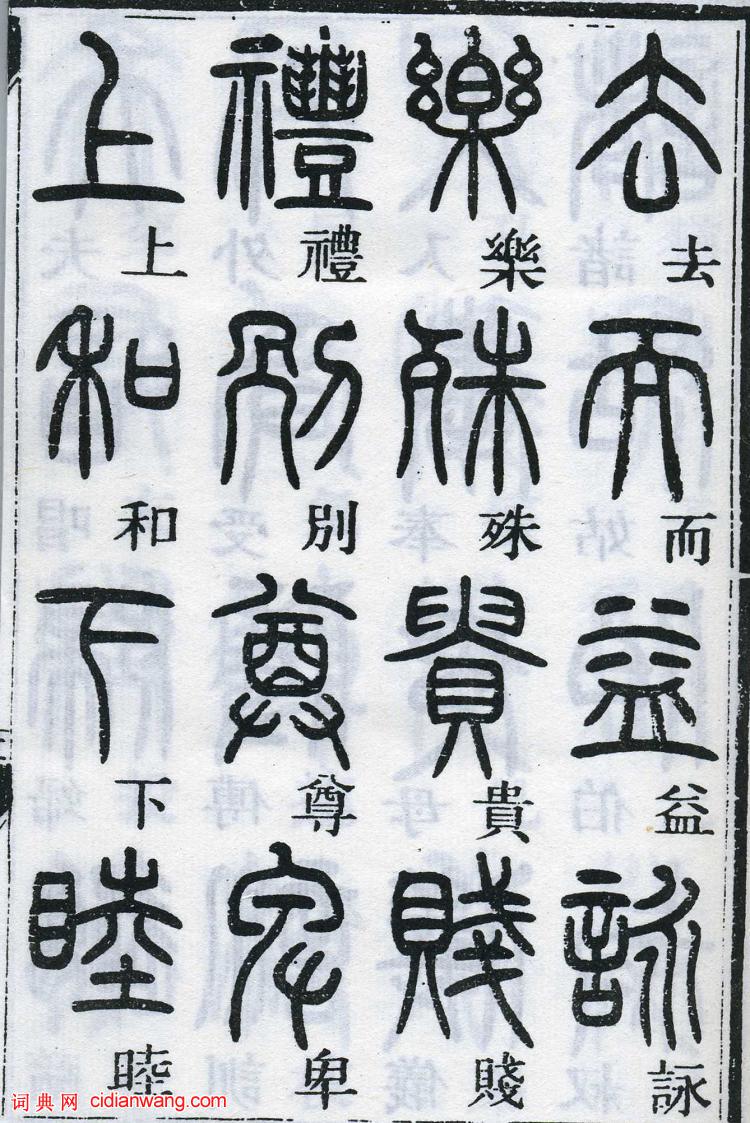 去而益詠
樂殊貴賤
禮別尊卑
上和下睦
词典网 cidianwang.com